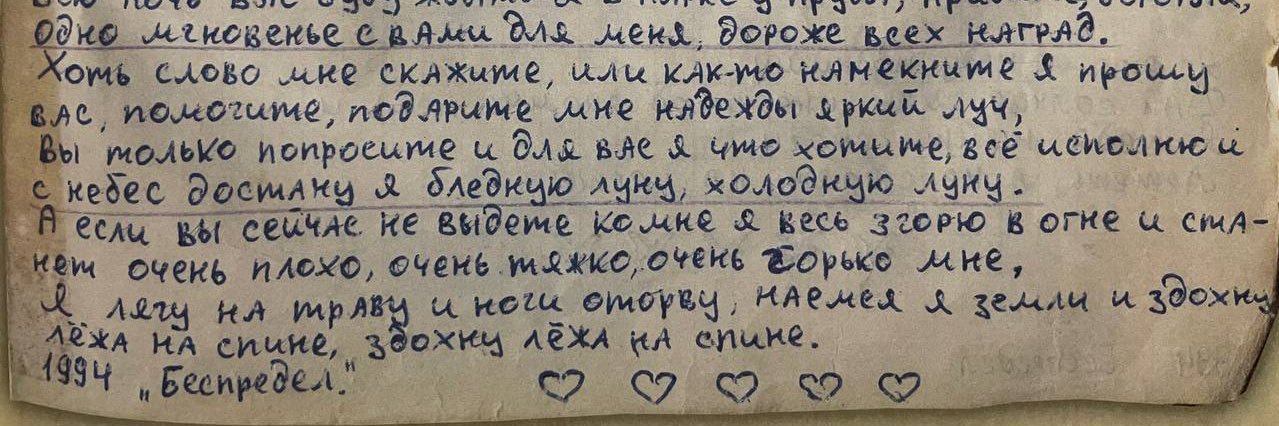 всю ночь вас буду ждать я в парке у пруда,
одно мгновенье с вами для меня, дороже всех наград.
Хоть слово мне скажите, или как-то намекните я прошу
вас, помогите, подарите мне надежды яркий луч,
Вы только попросите и для вас я что хотите, всё исполню и
с небес достану я бледную луну, холодную луну.
А если вы сейчас не выдете ко мне я весь згорю в огне и ста-
нет очень плохо, очень тяжко, очень горько мне,
Я лягу на траву и ноги оторву, наемся я земли и здохну
лёжа на спине, здохну лёжа на спине.
1994 „Беспредел."